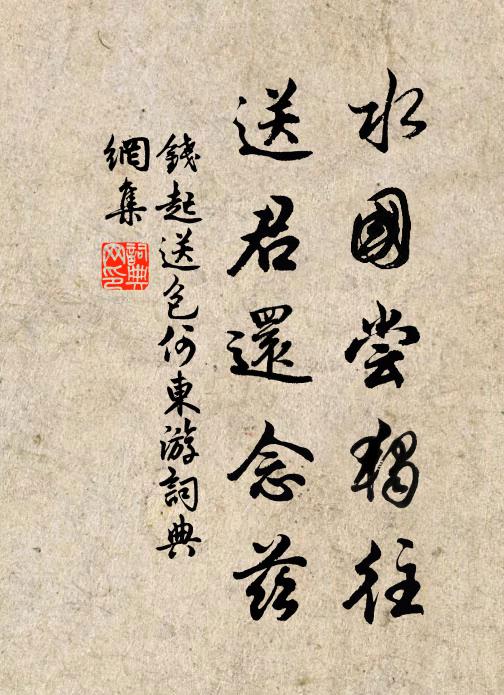 水國嘗獨往
送君還念茲
錢起送包何東游詞典
網集
詞典
网印